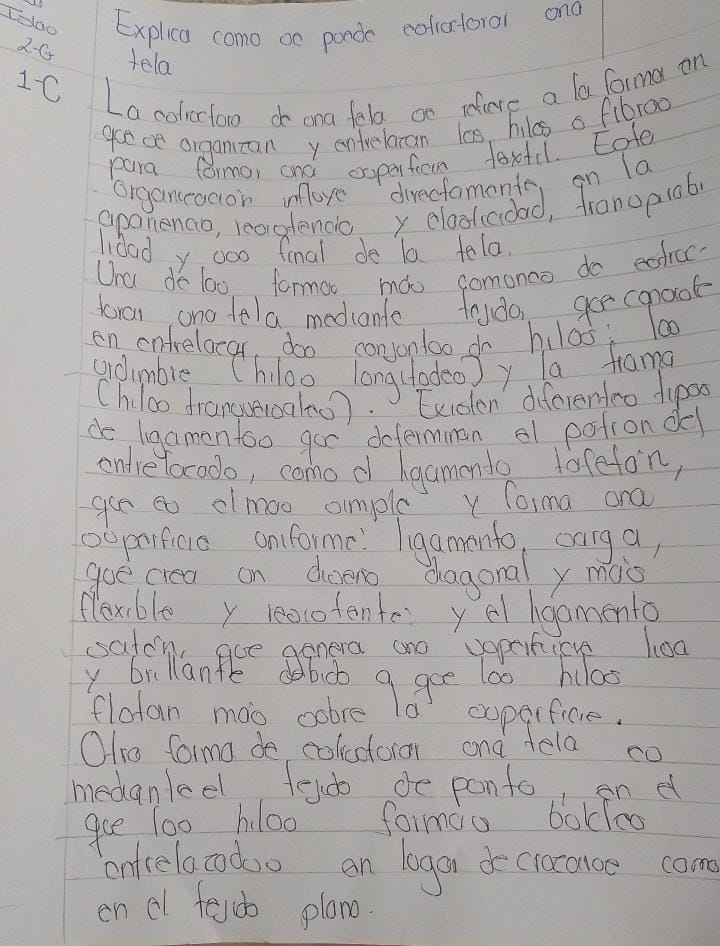 Islao
2-G
1-C
Explica como se puede estructurar una
tela
La estructura de una tela se refiere a la forma en
que se organizan y entrelazan los hilos o fibras
para formar una superficie textil. Este
Organización influye directamente en la
apariencia, resistencia y elasticidad, transpirabi
lidad y uso final de la tela.
Una de las formas más comunes de estruc-
turar una tela mediante tejido, que consiste
en entrelazar dos conjuntos de hilos: las
urdimbre (hilos longitudes) y la trama
(hilos tranqversales). Existen diferentes tipos
de ligamentos que determinan el patron del
entrelazado, como el ligamento tafetán,
que es el mas simple y forma una
superficie uniforme: ligamento sarga,
que crea un diseno diagonal y más
flexible y resistente: y el ligamento
satén, que genera una superficie lisa
y brillante debido a que los hilos
flotan más sobre la superficie.
Otra forma de estructurar una tela es
mediante el tejido de punto, en el
que los hilos forman bucles
entrelazados en lugar de cruzarse como
en el tejido plano.